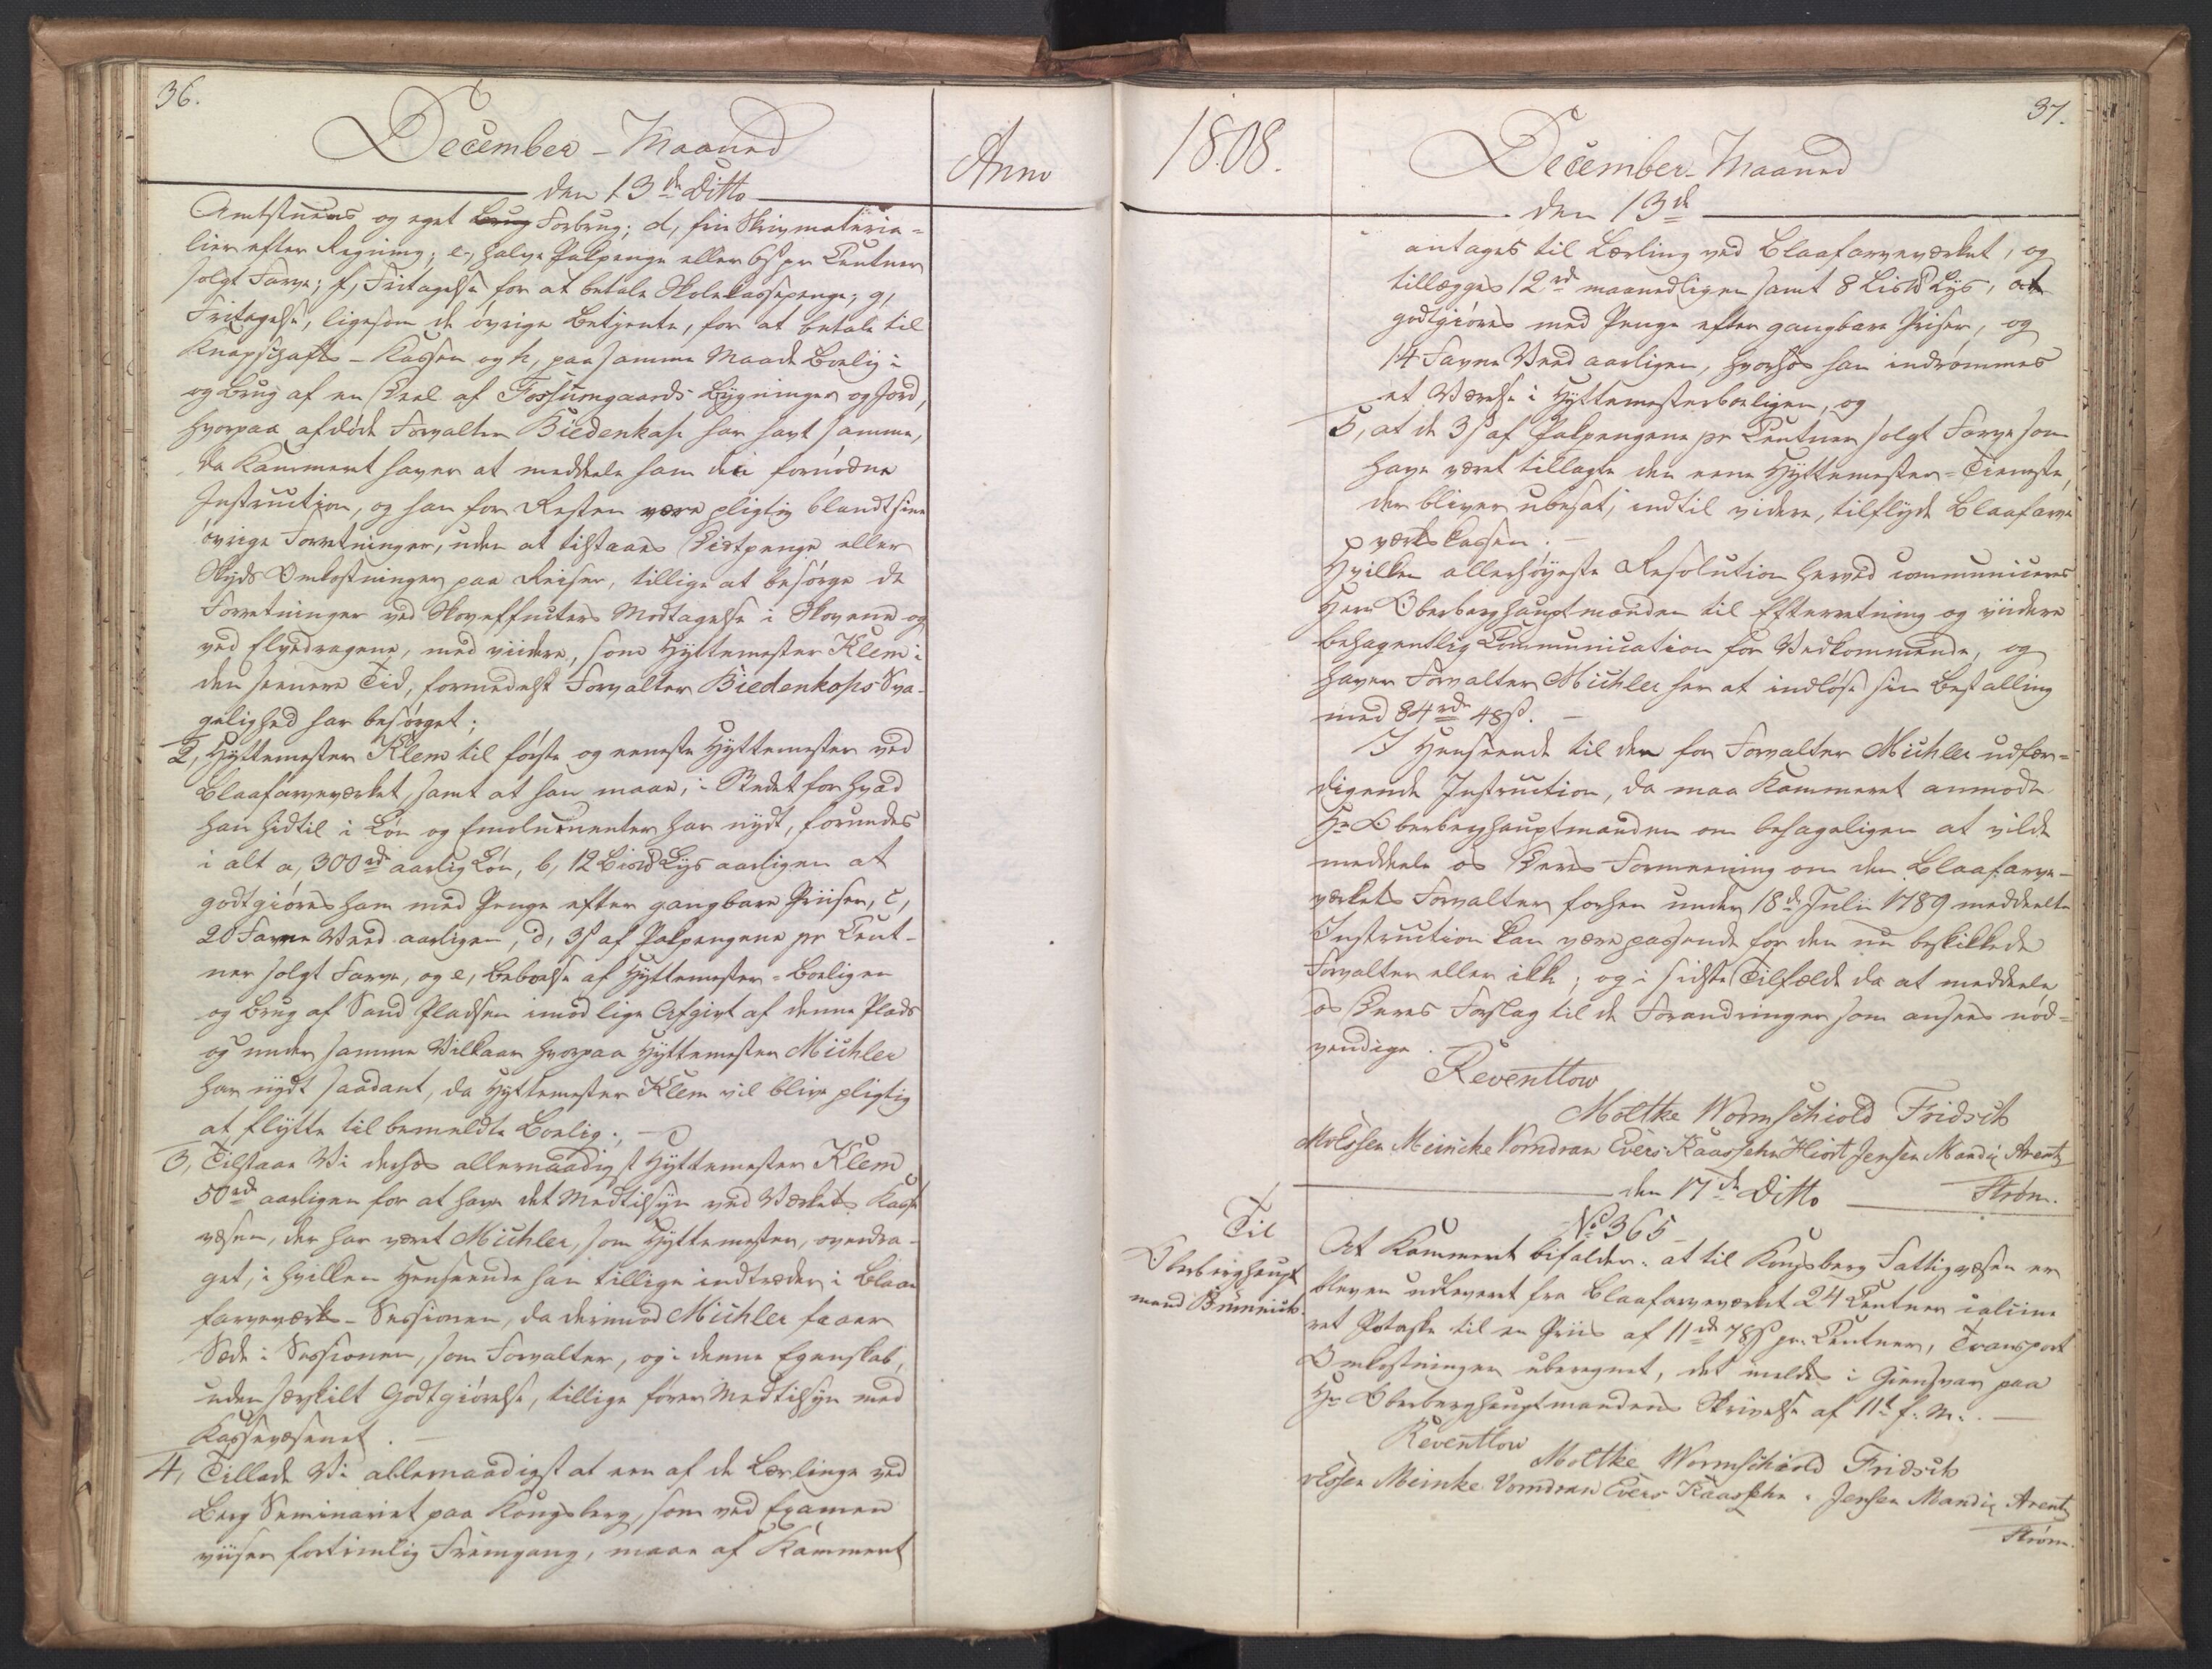 36.
December-Maaned
den 13de Ditto
Anno
Amtstuens og eget Brug Forbrug; d, frie Skrivmateria-
lier efter Regning; e, halve Palpenge eller 6 ß pr Centner
solgt Farve; f, Fritagelse for at betale Skolekassepenge; g,
Fritagelse, ligesom de øvrige Betjente, for at betale til
Knapschafts-Kassen og h, paa samme Maade Boelig i
og Brug af en Deel af Fossumgaards Bygninger og Jord,
hvorpaa afdøde Forvalter Biedenkap har havt samme,
da Kammeret haver at meddeele ham den fornødne
Instruction, og han for Resten være pligtig blandt sine
øvrige Forretninger, uden at tilstaaes Diætpenge eller
Skyds Omkostninger paa Reiser, tillige at besørge de
Forretninger ved Skoveffecters Modtagelse i Skovene og
ved Elvedragene, med viidere, som Hyttemester Klem i
den seenere Tid, formedelst Forvalter Biedenkaps Sva-
gelighed har besørget;
2, Hyttemester Klem til første og eeneste Hyttemester ved
Blaafarveværket, samt at han maae, i Stedet for hvad
han hidtil i Løn og Emolumenter har nydt, forundes
i alt a, 300 rd aarlig Løn, b, 12 Lispd Lys aarligen at
godtgiøres ham med Penge efter gangbare Priiser, c,
20 Favne Veed aarligen, d, 3 ß af Palpengene pr Cent-
ner solgt Farve, og e, Beboelse af Hyttemester-Boeligen
og Brug af Sand Pladsen imod lige Afgivt af denne Plads
og under samme Vilkaar hvorpaa Hyttemester Michler
har nydt saadant, da Hyttemester Klem vil blive pligtig
at flytte til bemeldte Boelig;
3, Tilstaae Vi derhos allernaadigst Hyttemester Klem
50 rd aarligen for at have det Medtilsyn ved Værkets Kasse
væsen, der har været Michler, som Hyttemester, overdra-
get, i hvilken Henseende han tillige indtræder i Blaae
farveværks-Sessionen, da derimod Michler faaer
Sæde i Sessionen, som Forvalter, og i denne Egenskab,
uden særskilt Godtgiørelse, tillige fører Medtilsyn med
Kassevæsenet.
4, Tillade Vi allernaadigst at een af de Lærlinge ved
Berg Seminariet paa Kongsberg, som ved Examen
viiser fortrinlig Fremgang, maae af Kammeret
1808.
37.
December-Maaned
den 13de
antages til Lærling ved Blaafarveværket, og
tillægges 12 rd maanedligen samt 8 Lispd Lys, at
godtgiøres med Penge efter gangbare Priser, og
14 Favne Veed aarligen, hvorhos han indrømmes
et Værelse i Hyttemesterboeligen, og
5, at de 3 ß af Palpengene pr Centner solgt Farve som
have været tillagte den eene Hyttemester-Tieneste,
der bliver ubesat, indtil videre, tilflyde Blaafarve
værkskassen.
Hvilken allerhøyeste Resolution herved communiceres
Herr Oberberghauptmanden til Efterretning og viidere
behagentlig Communication for Vedkommende, og
haver Forvalter Michler her at indløse sin Bestalling
med 84 rd 48 ß.
I Henseende til den for Forvalter Michler udfær-
digende Instruction, da maa Kammeret anmode
Hr Oberberghauptmanden om behageligen at vilde
meddeele os Deres Formeening om den Blaafarve-
værkets Forvalter forhen under 18de Julii 1789 meddeelte
Instruction kan være passende for den nu beskikkede
Forvalter eller ikke; og i sidste Tilfælde da at meddeele
os Deres Forslag til de Forandringer som ansees nød-
vendige.
Reventlow
Moltke Wormschiold Fridsch
Meincke Vomdran Evers Kaassehn Hiort Jensen Mandix Arentz
Strøm.
den 17de Ditto
No 365
Til
Oberberghaupt
mand Brünnich.
At Kammeret bifalder: at til Kongsberg Fattigvæsen er
bleven udleveret fra Blaafarveværket 24 Centner
ret Potaske til en Priis af 11 rd 78 ß pr. Centner, Transport
Omkostninger uberegnet, det meldes i Giensvar paa
Hr Oberberghauptmandens Skrivelse af 11te f. M.
Reventlow
Moltke Wormschiold Fridsch
Meincke Vomdran Evers Kaassehn Jensen Mandix Arentz
Strøm.